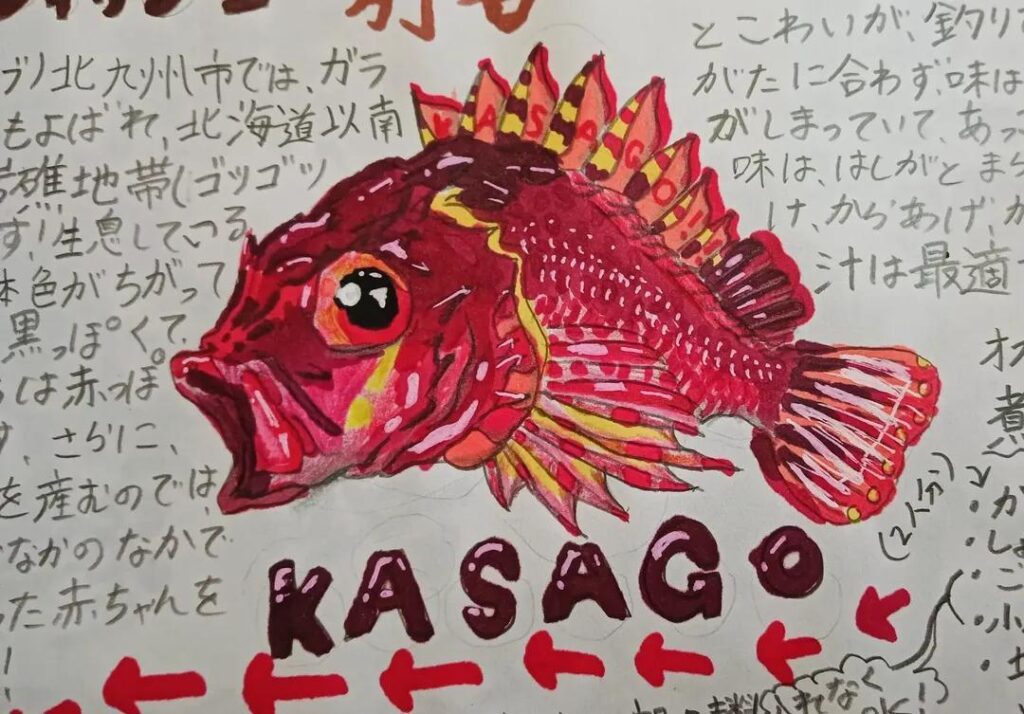 ブリ北九州市では、ガラ
もよばれ、北海道以南
岩礁地帯(ゴツゴツ
す!生息している
体色がちがって
黒っぽくて、
らは赤っぽ
す。さらに、
を産むのでは、
なかのなかで
った赤ちゃんを
!
とこわいが、釣り
がたに合わず、味は
がしまっていて、あっ
味は、はしがとまら
け、からあげ、か
汁は最適
KASAGO!!
KASAGO
オ
煮
(2人分)
・か
・しょ
・ご
・小
・土
入れなく
OK!